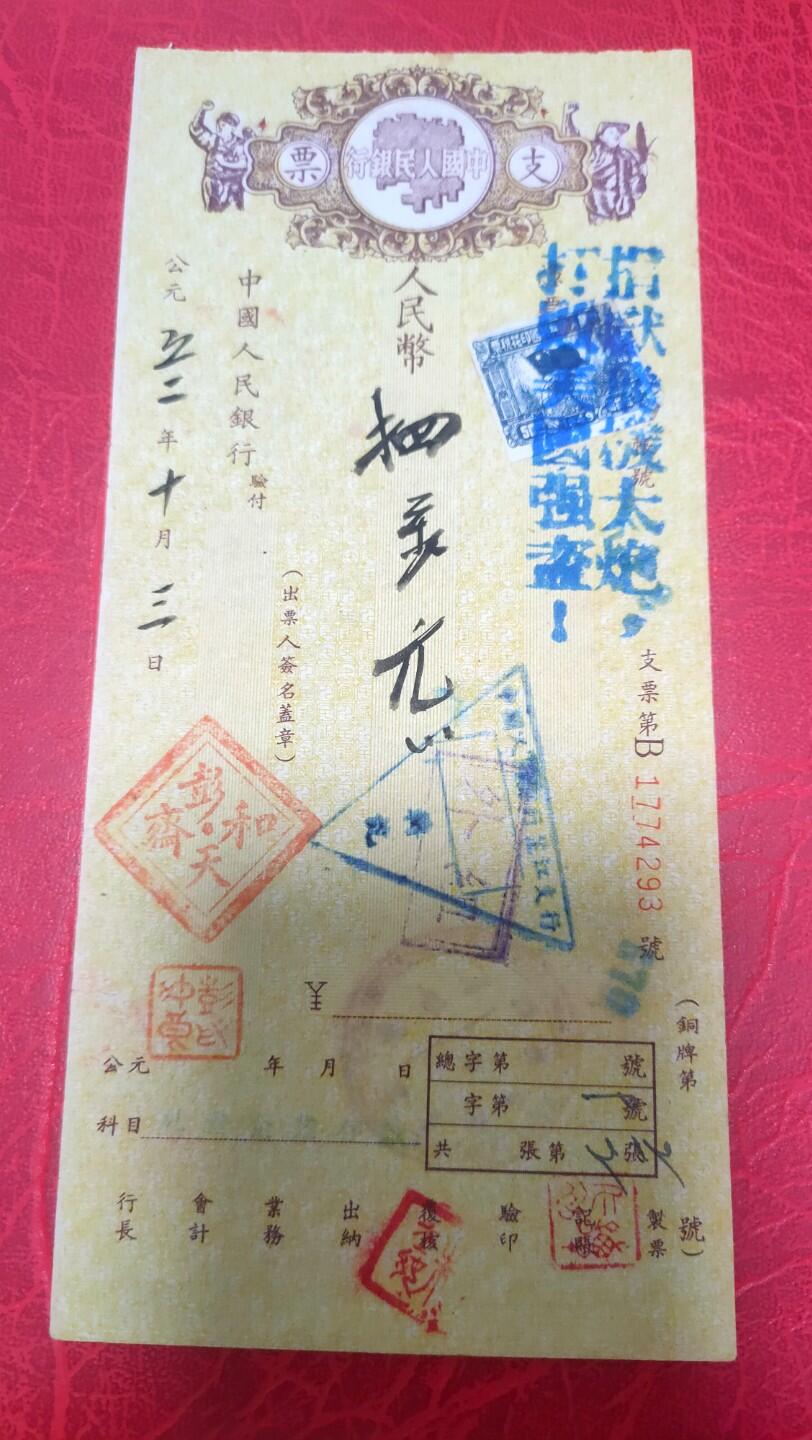 支票
中國人民銀行
捐獻飛機大炮，
打倒美國强盜！
號
支票第B 1774293 號
（銅牌第
號）
人民幣
元
（出票人簽名蓋章）
中國人民銀行
驗付
公元五二年十月三日
彭和天齋
¥
總字第 號
字第 號
共 張第 張
公元 年 月 日
科目
製票
記賬
驗印
覆核
出納
業務
會計
行長